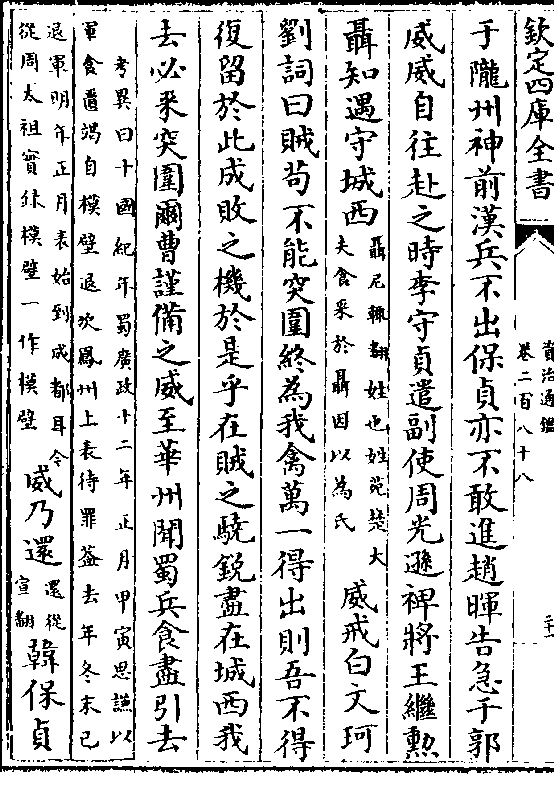 欽定四庫全書
資治通鑑
卷二百八十八
于隴州神前漢兵不出保貞亦不敢進趙暉告急于郭
威威自往赴之時李守貞遣副使周光遜裨將王繼勲
聶知遇守城西
聶尼輒翻姓也姓苑楚大
夫食采於聶因以為氏
威戒白文珂
劉詞曰賊苟不能突圍終為我禽萬一得出則吾不得
復留於此成敗之機於是乎在賊之驍銳盡在城西我
去必來突圍爾曹謹備之威至華州聞蜀兵食盡引去
考異曰十國紀年蜀廣政十二年正月甲寅思謙以
軍食匱竭自模壁退次鳳州上表待罪葢去年冬末已
退軍明年正月表始到成都耳今
從周太祖實録模壁一作模壁
威乃還
還從
宣翻
韓保貞